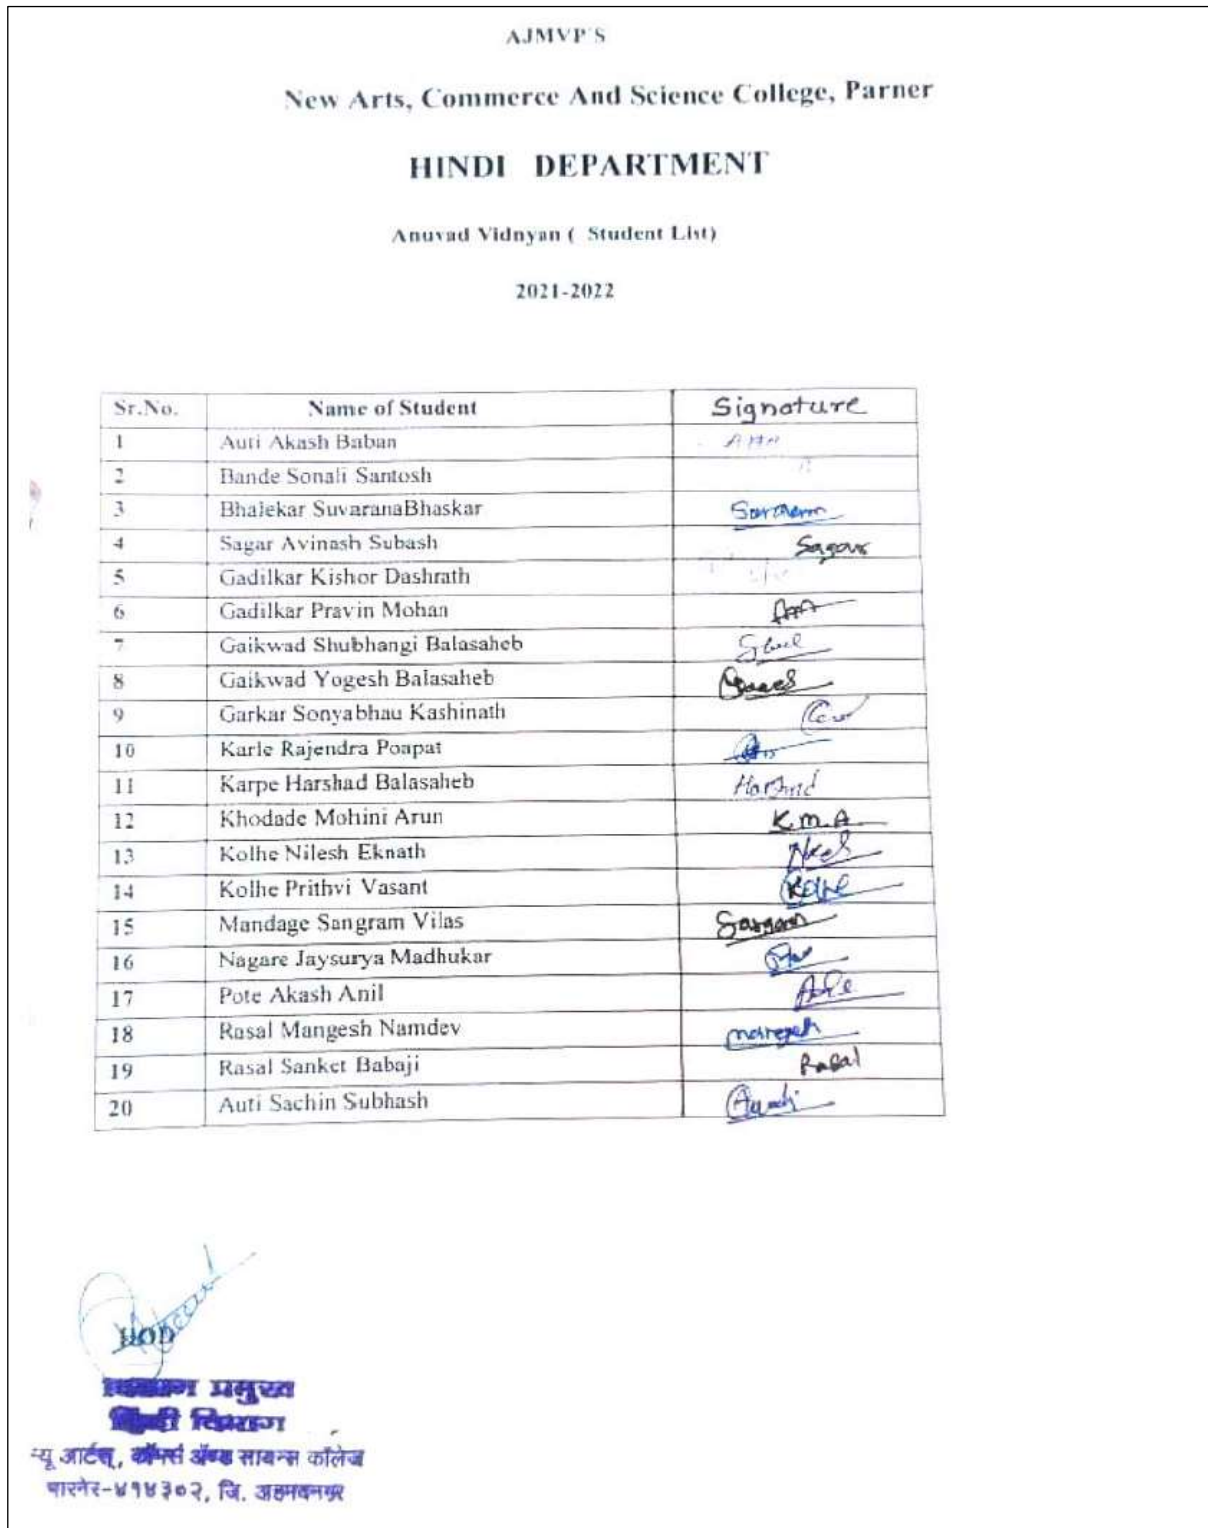 AJMVP'S
New Arts, Commerce And Science College, Parner
HINDI DEPARTMENT
Anuvad Vidnyan ( Student List)
2021-2022
Sr.No. Name of Student Signature
1 Auti Akash Baban
2 Bande Sonali Santosh
3 Bhalekar SuvaranaBhaskar
4 Sagar Avinash Subash Sagar
5 Gadilkar Kishor Dashrath
6 Gadilkar Pravin Mohan
7 Gaikwad Shubhangi Balasaheb
8 Gaikwad Yogesh Balasaheb
9 Garkar Sonyabhau Kashinath
10 Karle Rajendra Poapat
11 Karpe Harshad Balasaheb Harshad
12 Khodade Mohini Arun K.M.A
13 Kolhe Nilesh Eknath
14 Kolhe Prithvi Vasant
15 Mandage Sangram Vilas
16 Nagare Jaysurya Madhukar
17 Pote Akash Anil
18 Rasal Mangesh Namdev
19 Rasal Sanket Babaji Rasal
20 Auti Sachin Subhash
HOD
विभाग प्रमुख
हिंदी विभाग
न्यू आर्टस्, कॉमर्स ॲण्ड सायन्स कॉलेज
पारनेर-४१४३०२, जि. अहमदनगर